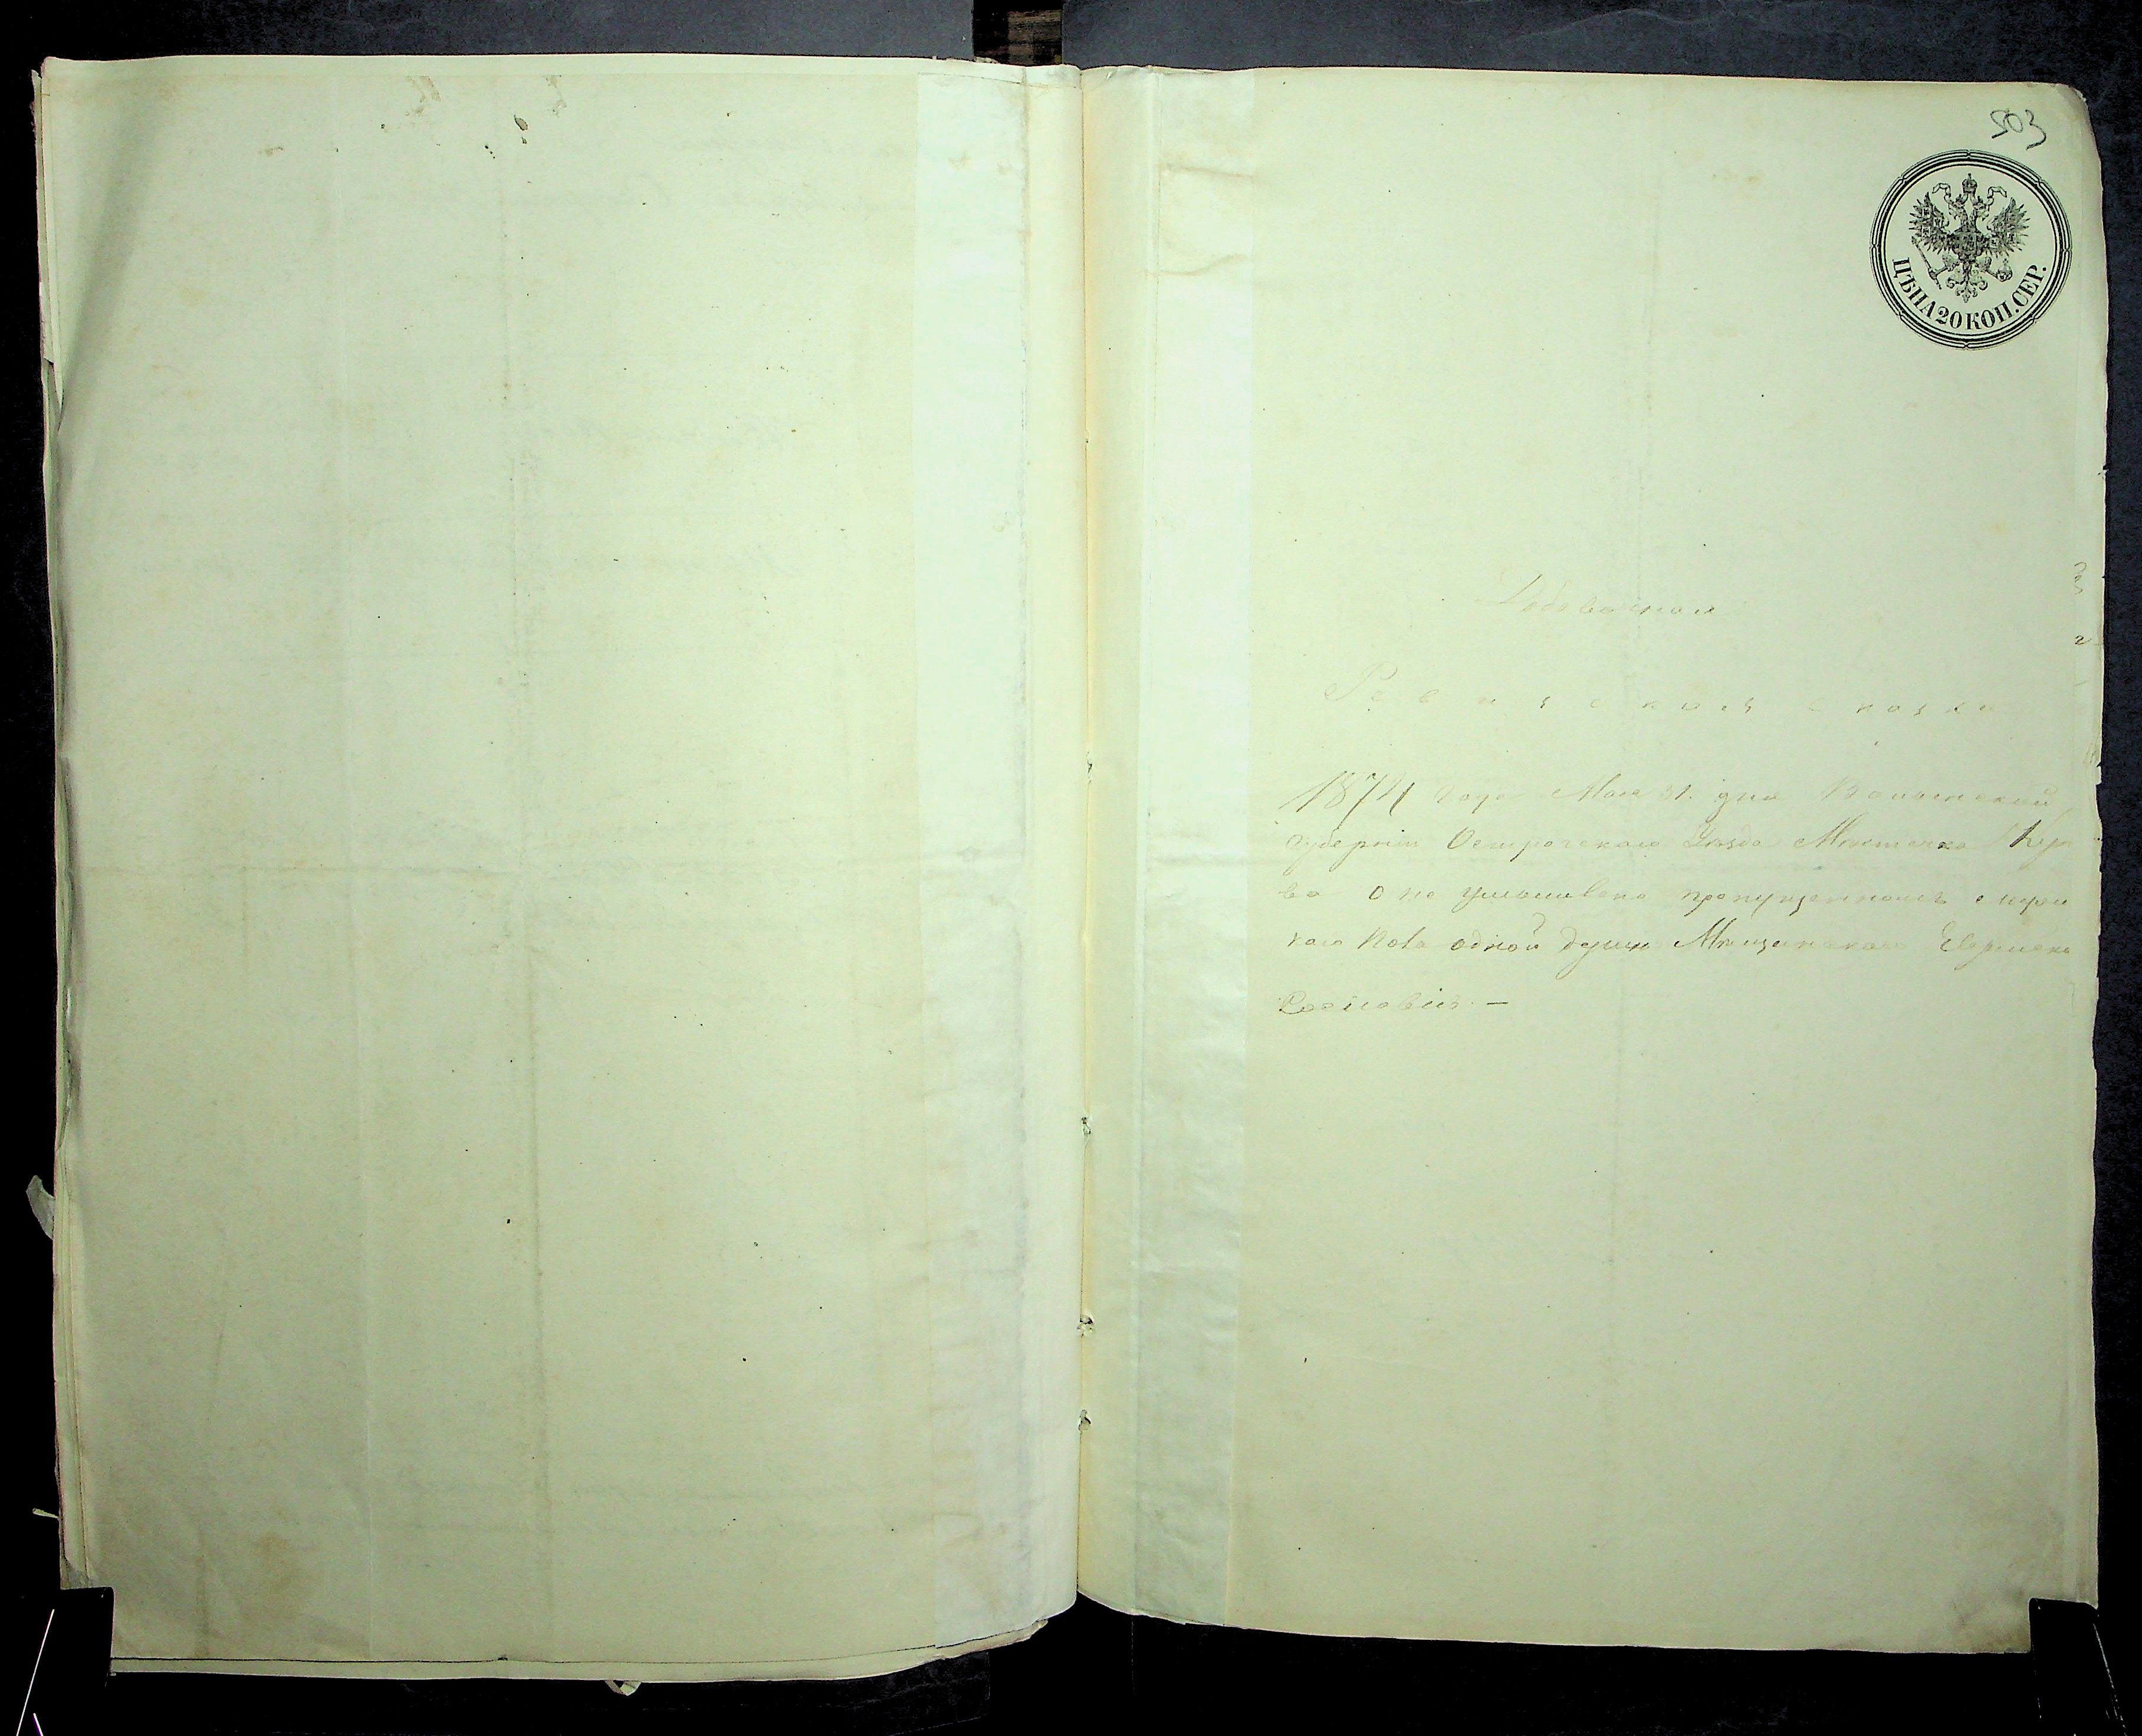 503
ЦѢНА 20 КОП. СЕР.
Добавочная
Ревизская сказка
1874 года Мая 31. дня Волынской
Губерніи Острогскаго Уѣзда Мѣстечка
ва о не умышленно пропущенномъ
каго пола одной души Мѣщанской Еврейска